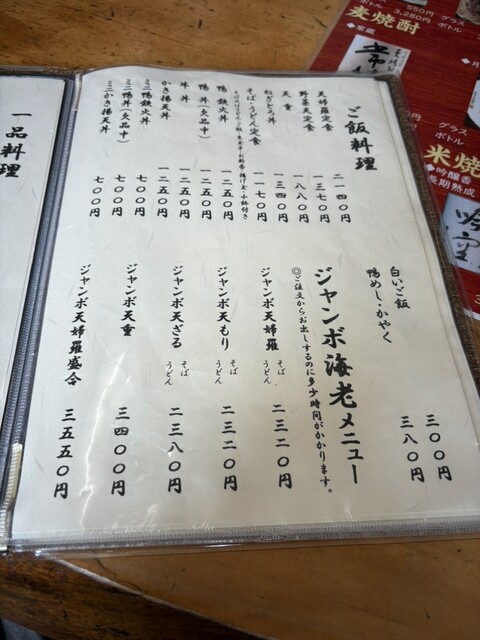 ご飯料理
天婦羅定食 二一四〇円
野菜天定食 一三七〇円
天重 一八八〇円
ねぎとろ丼 一三四〇円
そば・うどん定食 一一七〇円
鴨鉄火丼 一二五〇円
鴨丼(欠品中) 一二五〇円
牛丼 一二五〇円
かき揚天丼 一二五〇円
ミニ鴨鉄火丼 七〇〇円
ミニ鴨丼(欠品中) 七〇〇円
ミニかき揚天丼 七〇〇円
白いご飯 三〇〇円
鴨めし・かやく 三八〇円
ジャンボ海老メニュー
◎ご注文からお出しするのに多少時間がかかります。
ジャンボ天婦羅 そば うどん 二三二〇円
ジャンボ天もり そば うどん 二三二〇円
ジャンボ天ざる そば うどん 二三八〇円
ジャンボ天重 三四〇〇円
ジャンボ天婦羅盛合 三五五〇円
一品料理
550円 グラス
3,280円 ボトル
麦焼酎
グラス
ボトル
米焼
◆吟醸香
長期熟成